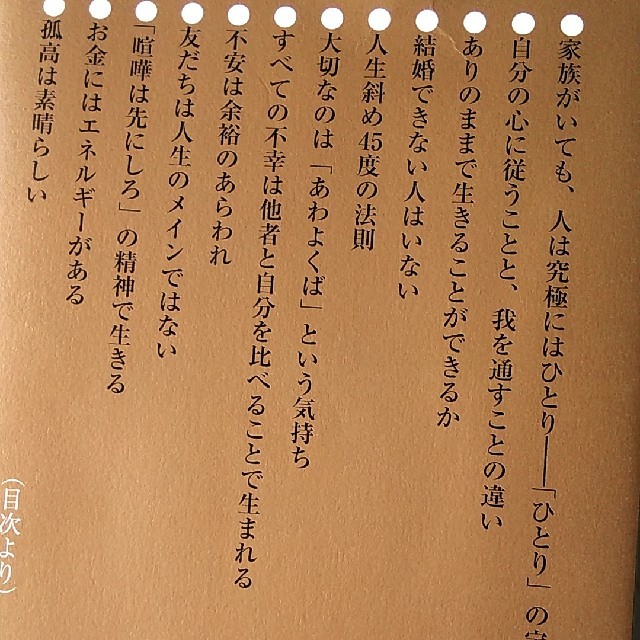 ●家族がいても、人は究極にはひとり──「ひとり」の
●自分の心に従うことと、我を通すことの違い
●ありのままで生きることができるか
●結婚できない人はいない
●人生斜め45度の法則
●大切なのは「あわよくば」という気持ち
●すべての不幸は他者と自分を比べることで生まれる
●不安は余裕のあらわれ
●友だちは人生のメインではない
●「喧嘩は先にしろ」の精神で生きる
●お金にはエネルギーがある
●孤高は素晴らしい
(目次より)